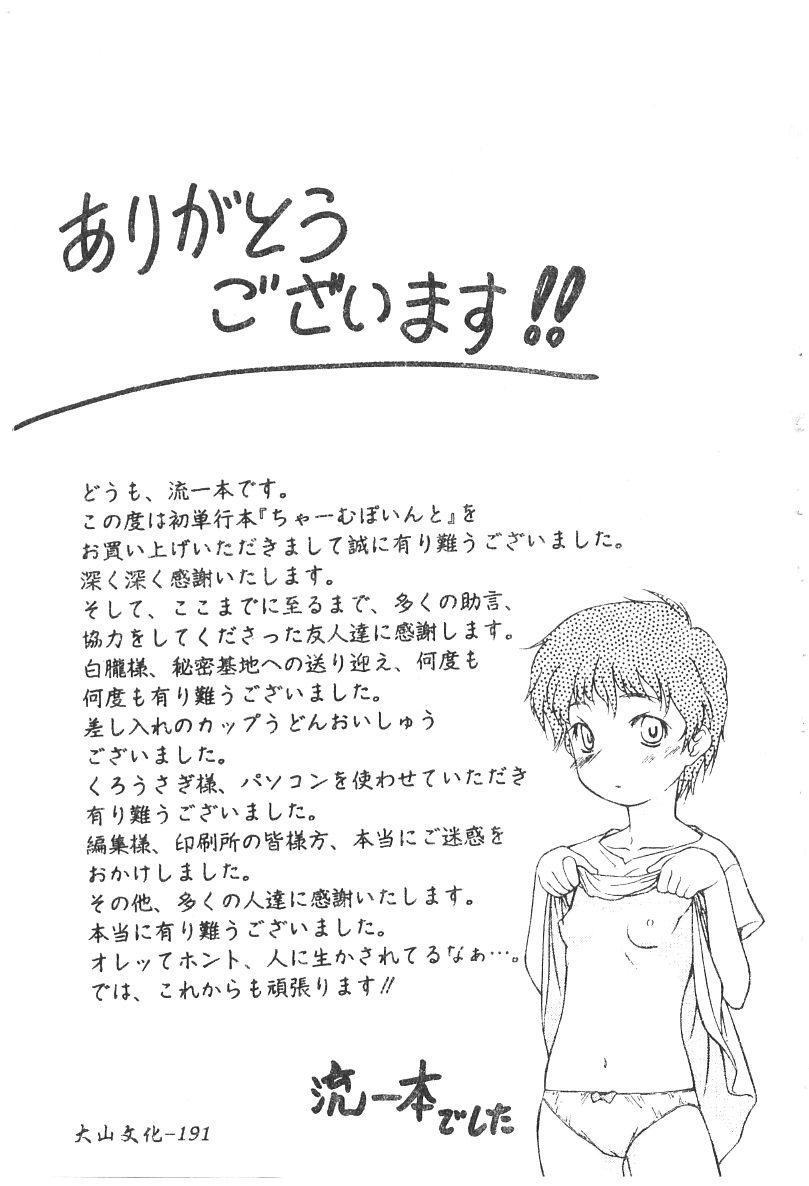 ありがとう
ございます!!
どうも、流一本です。
この度は初単行本『ちゃーむぽいんと』を
お買い上げいただきまして誠に有り難うございました。
深く深く感謝いたします。
そして、ここまでに至るまで、多くの助言、
協力をしてくださった友人達に感謝します。
白朧様、秘密基地への送り迎え、何度も
何度も有り難うございました。
差し入れのカップうどんおいしゅう
ございました。
くろうさぎ様、パソコンを使わせていただき
有り難うございました。
編集様、印刷所の皆様方、本当にご迷惑を
おかけしました。
その他、多くの人達に感謝いたします。
本当に有り難うございました。
オレってホント、人に生かされてるなぁ…。
では、これからも頑張ります!!
流一本でした
大山文化-191